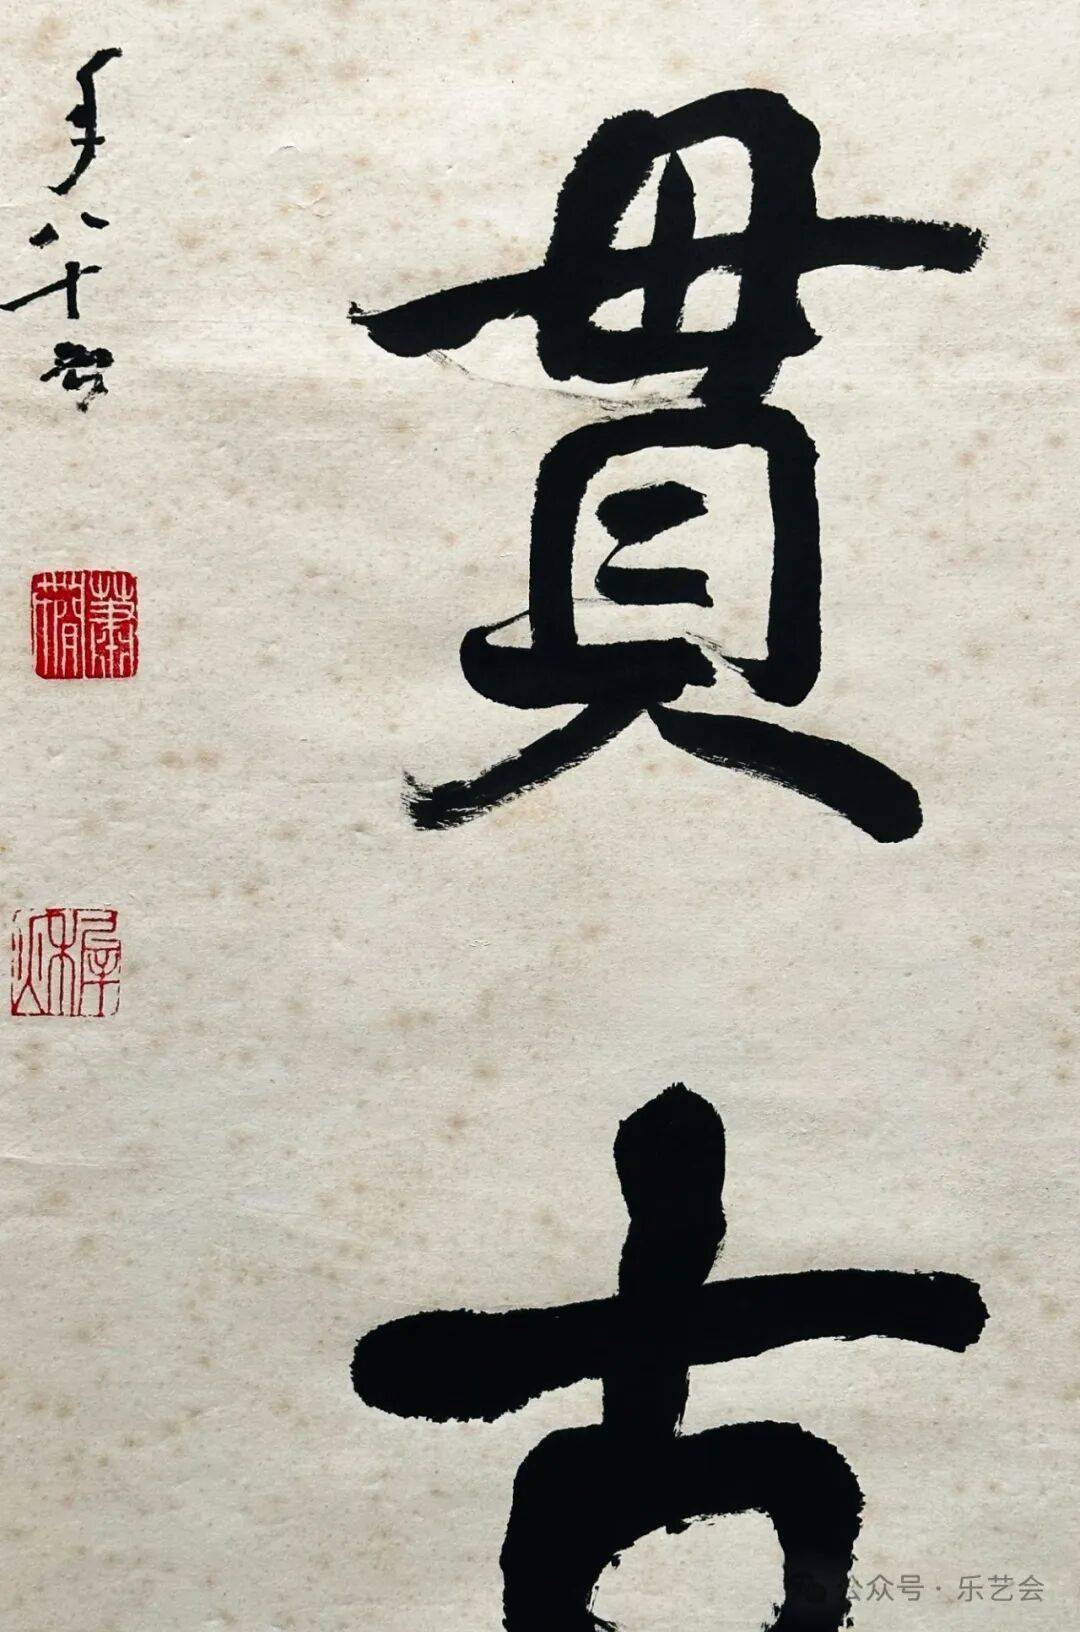 貫古
年八十
蕭
公众号 · 乐艺会